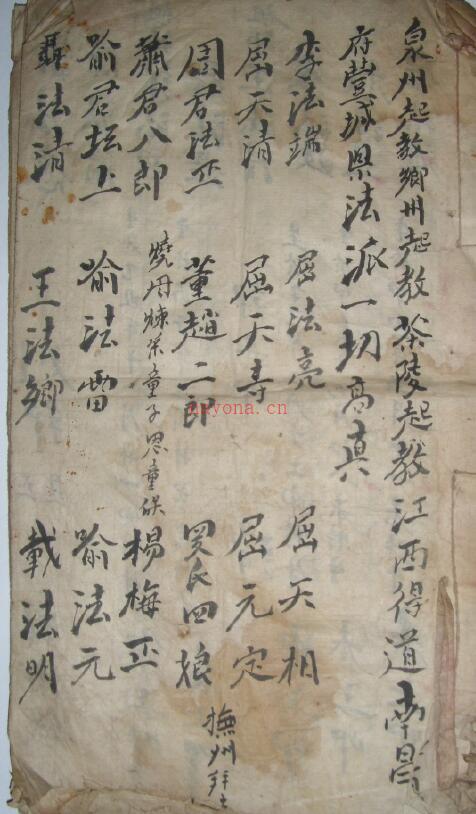 泉州起教鄉州起教茶陵起教江西得道南昌
府豐城県法派一切高真
李法端 屈法亮 屈天相
屈天清 屈天寿 屈元定
周君法正 董趙二郎 四娘
撫州
燒丹煉 童子 童
蕭君八郎 楊梅正
喻君坛上 喻法雷 喻法元
聶法清 王法鄉 載法明
nayona.cn